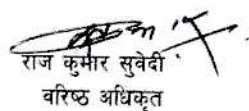 राज कुमार सुवेदी
वरिष्ठ अधिकृत